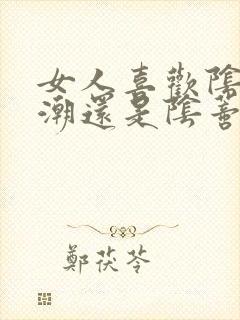 女人喜歡陰
潮還是陰蒂
鄭茯苓